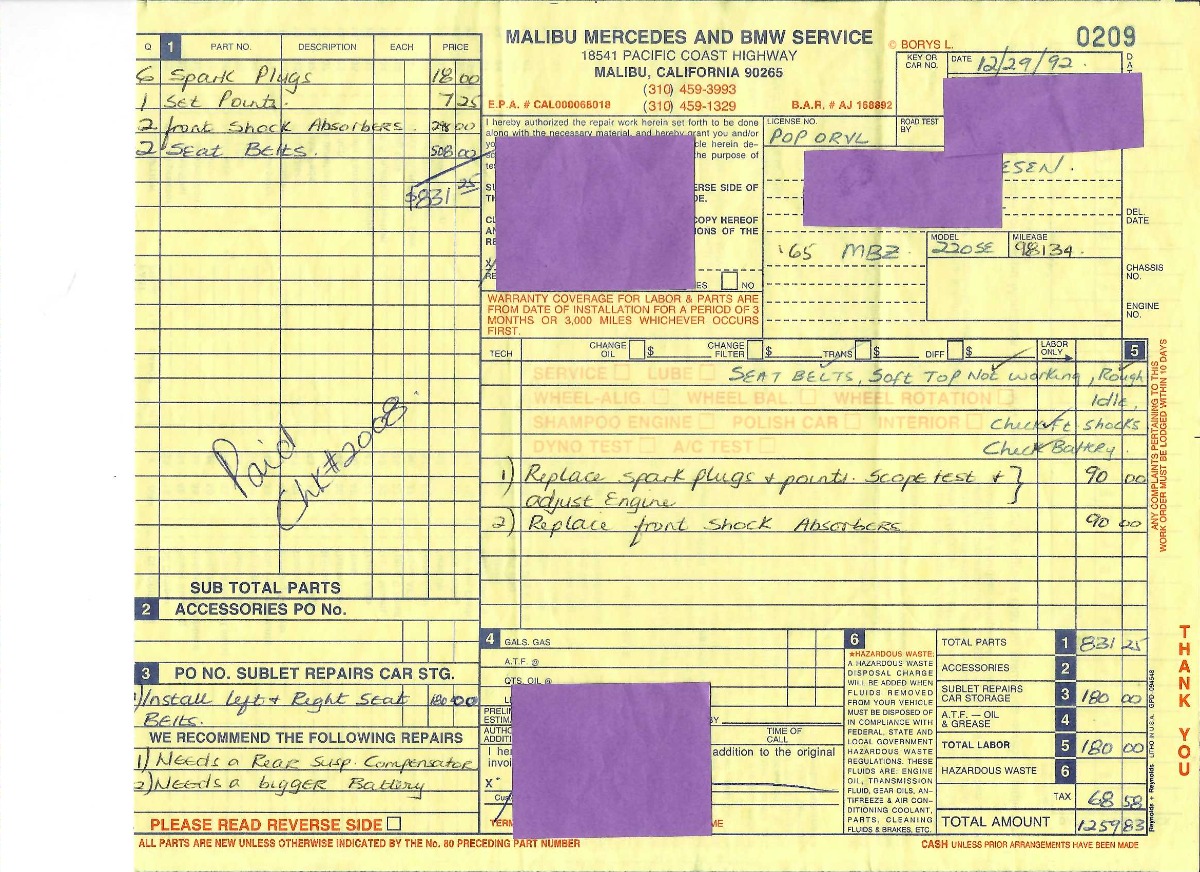 MALIBU MERCEDES AND BMW SERVICE
18541 PACIFIC COAST HIGHWAY
MALIBU, CALIFORNIA 90265
(310) 459-3993
(310) 459-1329
E.P.A. # CAL000066018
B.A.R. # AJ 168892
© BORYS L.
0209
KEY OR CAR NO.
DATE 12/29/92
Q 1 PART NO. DESCRIPTION EACH PRICE
6 Spark Plugs 18 00
1 Set Points. 7 25
2 front Shock Absorbers. 298 00
2 Seat Belts. 508 00
$831 25
Paid
Chk#2008
SUB TOTAL PARTS
2 ACCESSORIES PO No.
3 PO NO. SUBLET REPAIRS CAR STG.
1) Install left + Right Seat 180 00
BELTS.
WE RECOMMEND THE FOLLOWING REPAIRS
1) NEEDS a REAR Susp. Compensator
2) NEEDS a bigger Battery
PLEASE READ REVERSE SIDE
I hereby authorized the repair work herein set forth to be done
along with the necessary material, and hereby grant you and/or
cle herein de-
the purpose of
ERSE SIDE OF
DE.
COPY HEREOF
IONS OF THE
NO
WARRANTY COVERAGE FOR LABOR & PARTS ARE
FROM DATE OF INSTALLATION FOR A PERIOD OF 3
MONTHS OR 3,000 MILES WHICHEVER OCCURS
FIRST.
LICENSE NO. POP ORVL
ROAD TEST BY
ESEN.
DEL. DATE
'65 MBZ
MODEL 220SE
MILEAGE 98134.
CHASSIS NO.
ENGINE NO.
TECH CHANGE OIL $ CHANGE FILTER $ TRANS $ DIFF $ LABOR ONLY 5
SERVICE LUBE
SEAT BELTS, Soft Top Not working, Rough
WHEEL-ALIG. WHEEL BAL. WHEEL ROTATION
Idle,
SHAMPOO ENGINE POLISH CAR INTERIOR
Check ft. shocks
DYNO TEST A/C TEST
Check Battery.
1) Replace spark plugs + points. Scope test + } 90 00
adjust Engine
2) Replace front Shock Absorbers 90 00
ANY COMPLAINTS PERTAINING TO THIS
WORK ORDER MUST BE LODGED WITHIN 10 DAYS
4 GALS. GAS
A.T.F. @
QTS. OIL @
TIME OF CALL
I her
addition to the original
invoi
X
6
★HAZARDOUS WASTE:
A HAZARDOUS WASTE
DISPOSAL CHARGE
WILL BE ADDED WHEN
FLUIDS REMOVED
FROM YOUR VEHICLE
MUST BE DISPOSED OF
IN COMPLIANCE WITH
FEDERAL, STATE AND
LOCAL GOVERNMENT
HAZARDOUS WASTE
REGULATIONS. THESE
FLUIDS ARE: ENGINE
OIL, TRANSMISSION
FLUID, GEAR OILS, AN-
TIFREEZE & AIR CON-
DITIONING COOLANT,
PARTS, CLEANING
FLUIDS & BRAKES, ETC.
TOTAL PARTS 1 831 25
ACCESSORIES 2
SUBLET REPAIRS CAR STORAGE 3 180 00
A.T.F. — OIL & GREASE 4
TOTAL LABOR 5 180 00
HAZARDOUS WASTE 6
TAX 68 58
TOTAL AMOUNT 1259 83
THANK YOU
ALL PARTS ARE NEW UNLESS OTHERWISE INDICATED BY THE No. 80 PRECEDING PART NUMBER
CASH UNLESS PRIOR ARRANGEMENTS HAVE BEEN MADE